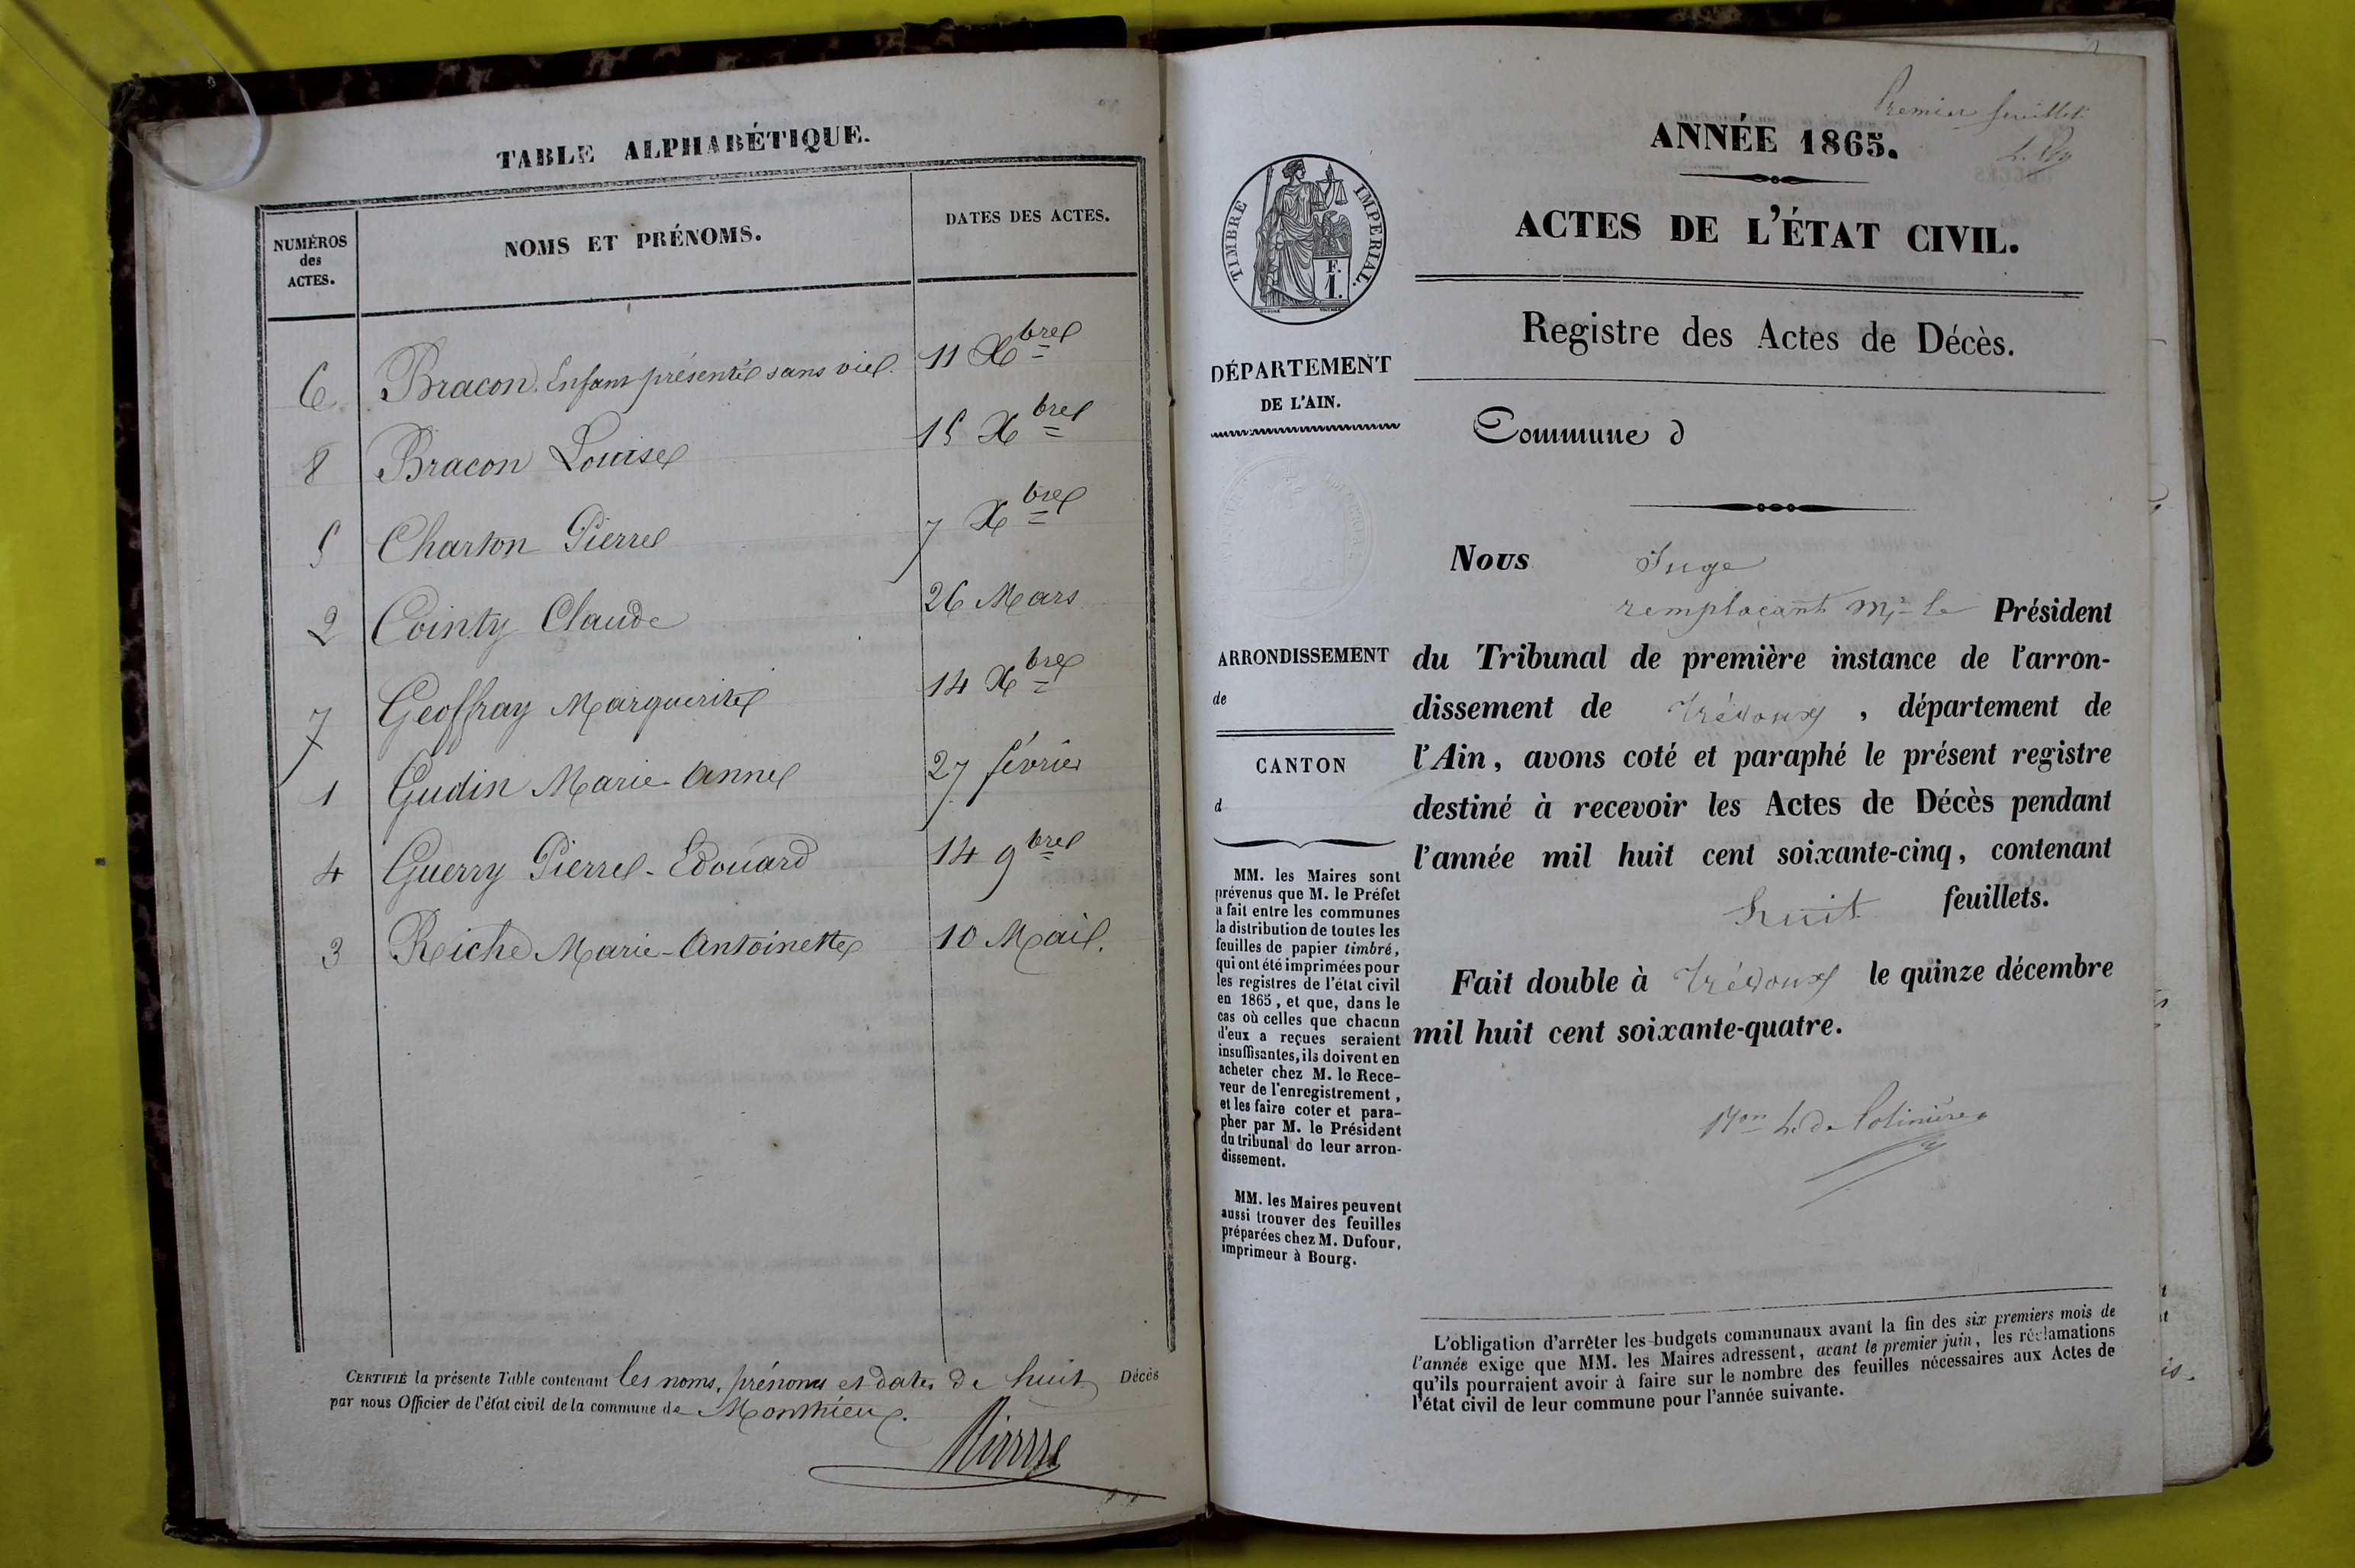 TABLE ALPHABÉTIQUE.
NUMÉROS des ACTES.
NOMS ET PRÉNOMS.
DATES DES ACTES.
6 Bracon Enfant présenté sans vie. 11 Xbre
8 Bracon Louise 15 Xbre
5 Charton Pierre 7 Xbre
2 Cointy Claude 26 Mars
7 Geoffray Marguerite 14 Xbre
1 Gudin Marie-Anne 27 février
4 Guerry Pierre-Edouard 14 9bre
3 Reiche Marie-Antoinette 10 Mai.
CERTIFIÉ la présente Table contenant les noms, prénoms et dates de huit Décès
par nous Officier de l'état civil de la commune de Monthieux.
Premier feuillet
ANNÉE 1865.
ACTES DE L'ÉTAT CIVIL.
TIMBRE IMPERIAL.
F. 1.
Registre des Actes de Décès.
DÉPARTEMENT
DE L'AIN.
Commune d
ARRONDISSEMENT
de
CANTON
d
Nous Juge
remplaçant Mr le Président
du Tribunal de première instance de l'arron-
dissement de Trévoux, département de
l'Ain, avons coté et paraphé le présent registre
destiné à recevoir les Actes de Décès pendant
l'année mil huit cent soixante-cinq, contenant
huit feuillets.
Fait double à Trévoux le quinze décembre
mil huit cent soixante-quatre.
MM. les Maires sont
prévenus que M. le Préfet
a fait entre les communes
la distribution de toutes les
feuilles de papier timbré,
qui ont été imprimées pour
les registres de l'état civil
en 1865, et que, dans le
cas où celles que chacun
d'eux a reçues seraient
insuffisantes, ils doivent en
acheter chez M. le Rece-
veur de l'enregistrement,
et les faire coter et para-
pher par M. le Président
du tribunal de leur arron-
dissement.
MM. les Maires peuvent
aussi trouver des feuilles
préparées chez M. Dufour,
imprimeur à Bourg.
L'obligation d'arrêter les budgets communaux avant la fin des six premiers mois de
l'année exige que MM. les Maires adressent, avant le premier juin, les réclamations
qu'ils pourraient avoir à faire sur le nombre des feuilles nécessaires aux Actes de
l'état civil de leur commune pour l'année suivante.